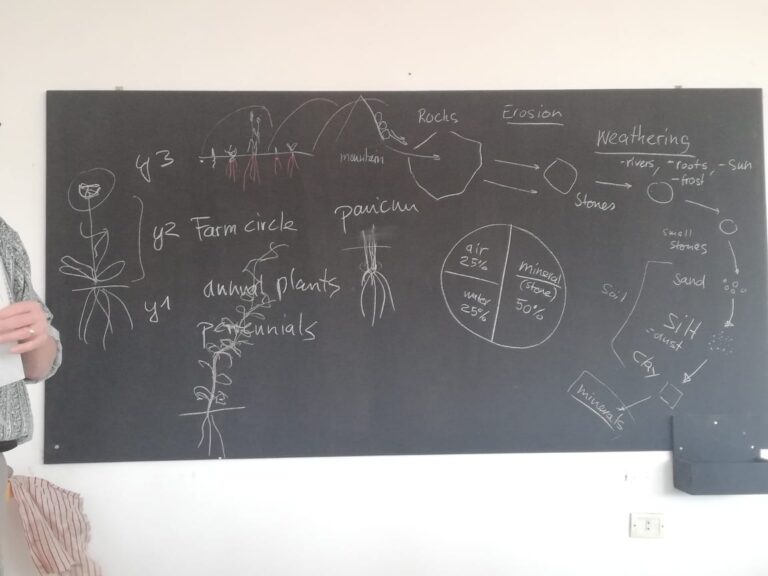 y3
y2 Farm circle
y1
annual plants
perennials
panicum
mountain
Rocks
Erosion
Weathering
- rivers, - roots, - Sun
- frost
Stones
small
stones
Sand
Silt
- dust
Clay
Soil
minerals
air
25%
water
25%
mineral
(stone)
50%